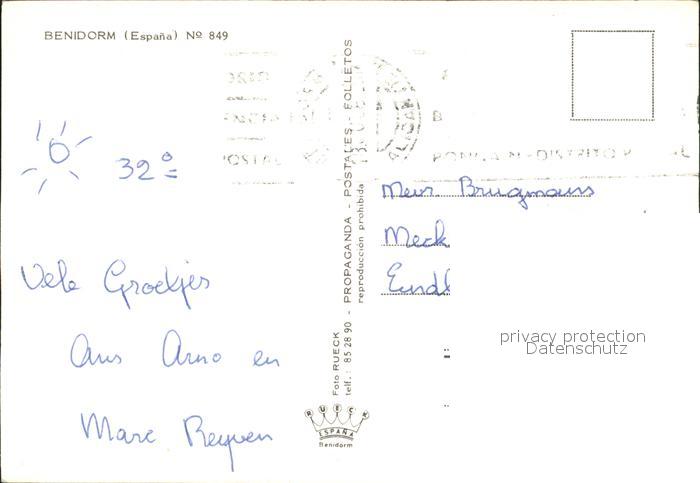 BENIDORM (España) Nº 849
32º
Vele Groetjes
Ans Arno en
Marc
Foto RUECK
telf.: 85 28 90 - PROPAGANDA - POSTALES - FOLLETOS
reproducción prohibida
RUECK
ESPAÑA
Benidorm
POSTAL
DISTRITO
Mevr Brugmans
Meck
privacy protection
Datenschutz